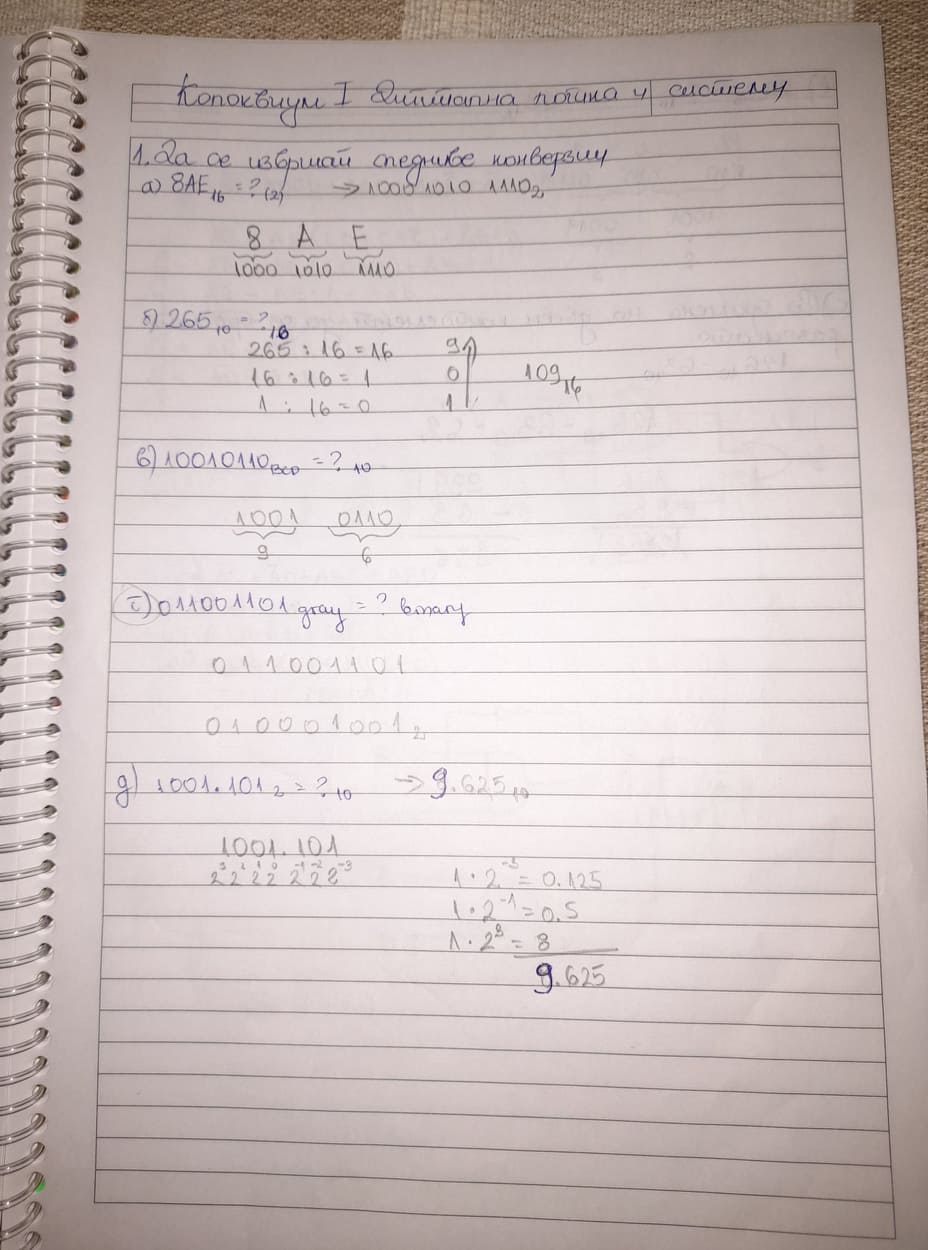 Колоквиум I Дигитална логика и системи
1. Да се извршат следниве конверзии
а) 8AE16 = ?(2) → 1000 1010 11102
8 A E
1000 1010 1110
б) 26510 = ?16
265 : 16 = 16 9
16 : 16 = 1 0 10916
1 : 16 = 0 1
в) 10010110BCD = ?10
1001 0110
9 6
г) 011001101 gray = ? binary
011001101
0100010012
д) 1001.1012 = ?10 → 9.62510
1001.101
2³ 2² 2¹ 2⁰ 2⁻¹ 2⁻² 2⁻³
1 · 2⁻³ = 0.125
1 · 2⁻¹ = 0.5
1 · 2³ = 8
9.625